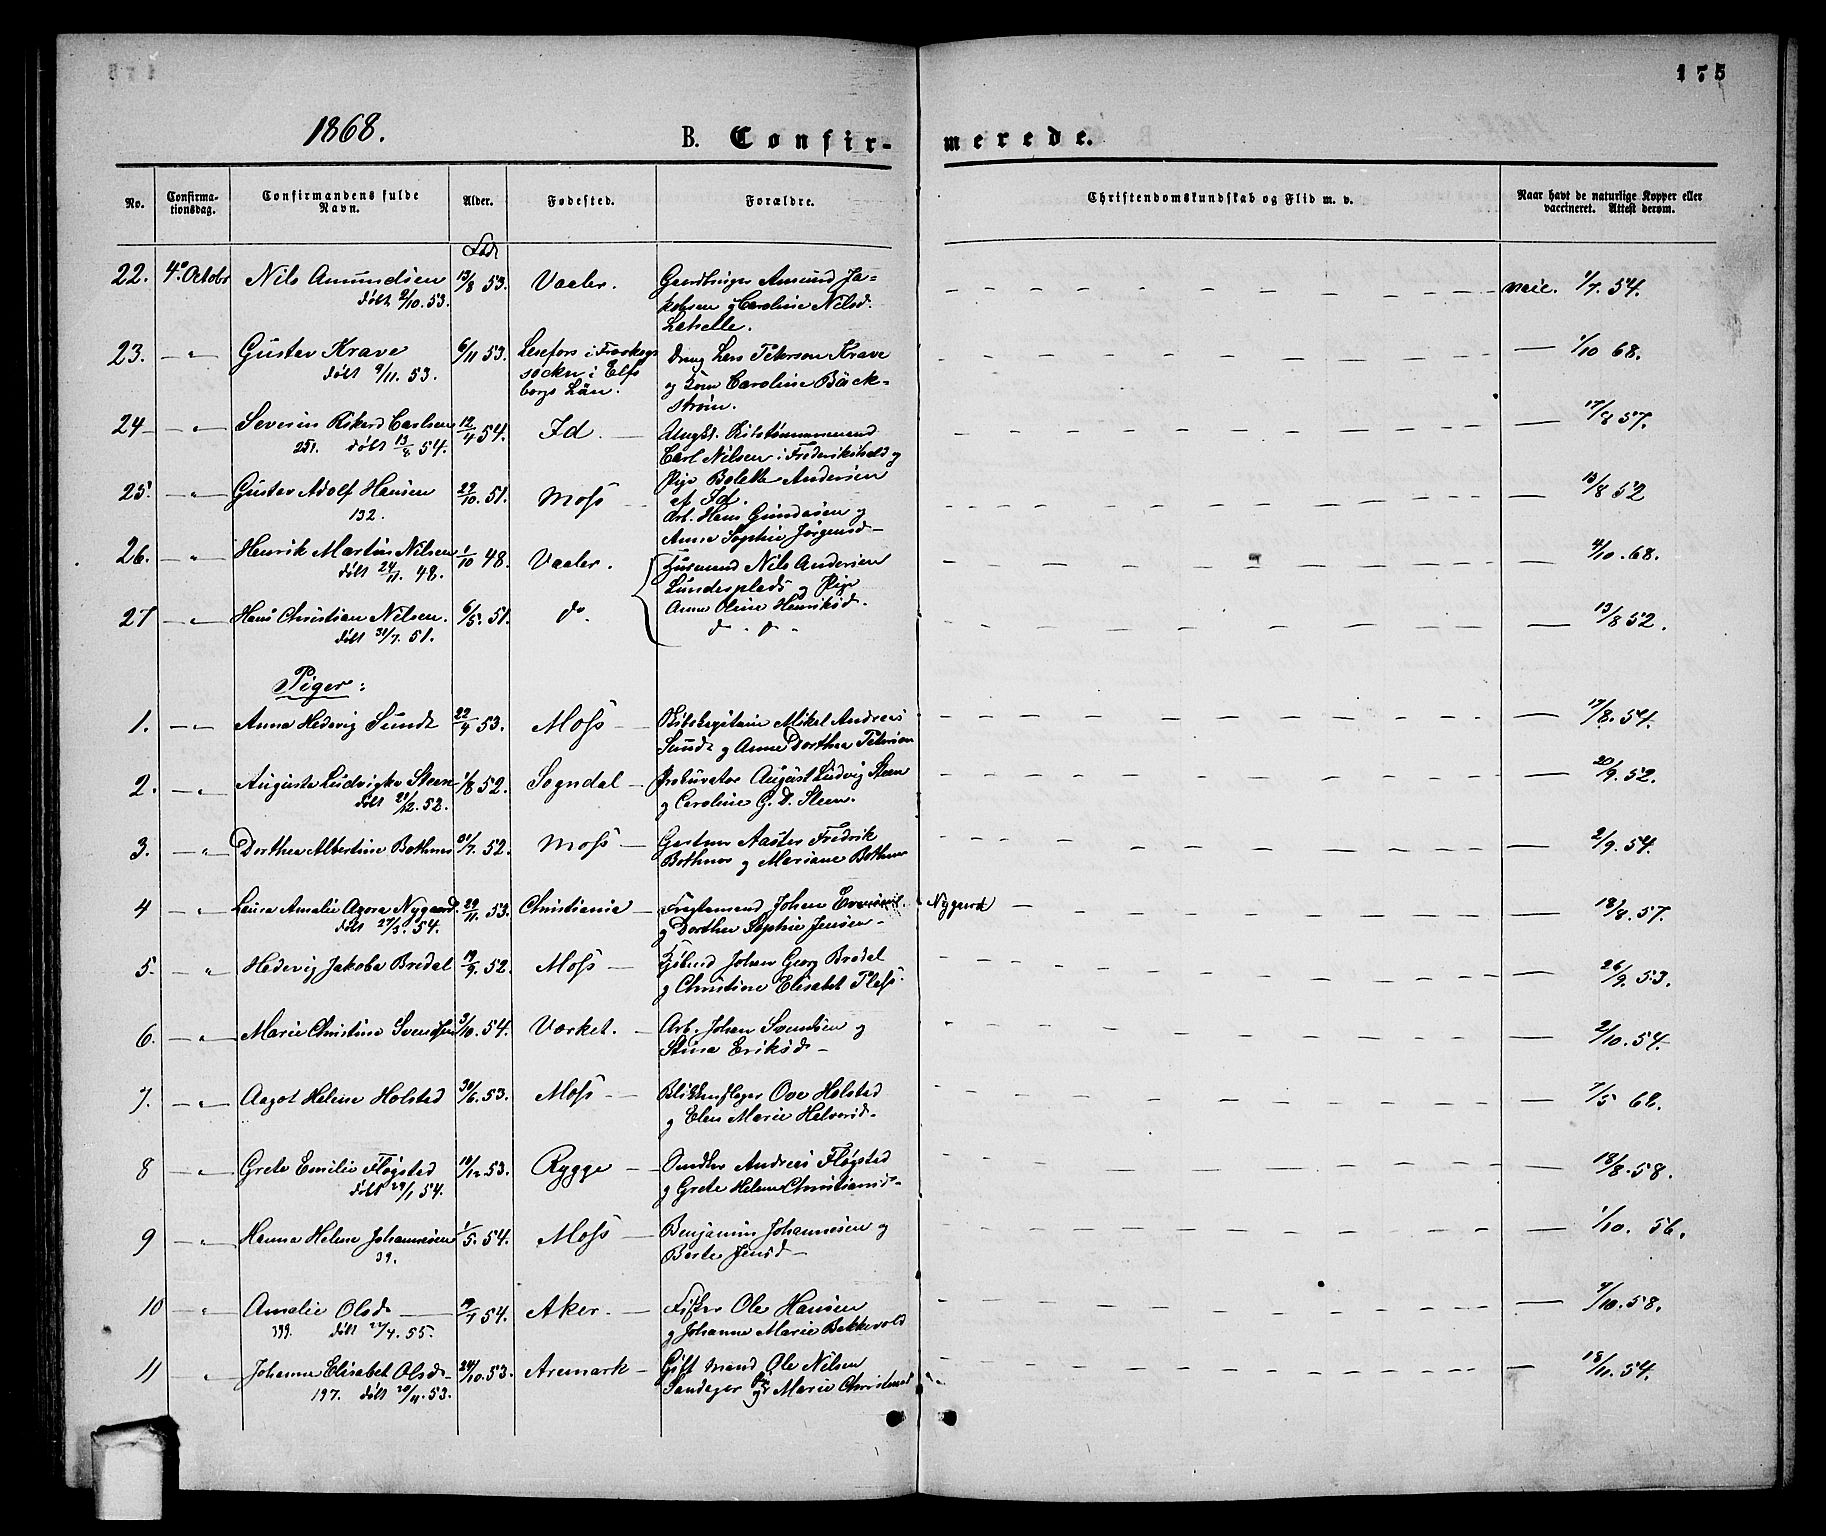 175
1868.
B. Confirmerede.
No.
Confirmationsdag.
Confirmandens fulde Navn.
Alder.
Fødested.
Forældre.
Christendomskundskab og Flid m. v.
Naar havt de naturlige Kopper eller vaccineret. Attest derom.
Født
22. 4. Octobr Nils Amundsen 13/8 53. Vaaler. Amund Ja- vacc. 1/7. 54.
døbt 9/10. 53. kobsen og Caroline Nilsd.
23. — " — Gustav Krave 6/11 53. i Lars Peterson Krave — 1/10 68.
døbt 9/11. 53. socken i Elfs og Caroline Bäck-
borgs Län. strøm.
24 — " — Severin Rikard Carlsen 12/4 54. Id. — — 17/8 57.
251. døbt 13/8. 54. Carl Nilsen i Frederikshald og
25. — " — Gustav Adolf Hansen 29/10. 51. Moss — Pige Bolette Andersen — 13/8 52
132. af Id.
Arb. Hans Gundersen og
Anna Sophie Jørgensd —
26. — " — Henrik Martin Nilsen 1/10 48. Vaaler. Husmand Nils Andersen — 4/10. 68.
døbt 24/11. 48. Lundesplads og Pige
Anne Oline Henriksd.
27 — " — Hans Christian Nilsen. 6/5. 51. do. do. do. — 13/8 52.
døbt 31/7. 51.
Piger:
1. — " — Anna Hedevig Sundt 22/4 53. Moss — Skibskaptain Mikal Andreas — 17/8. 54.
Sundt og Anne Dorthea Peterson
2. — " — Augusta Ludvigka Steen 1/8 52. Sogndal — Prokurator August Ludvig Steen — 20/9. 52.
døbt 21/12. 52. og Caroline G. D. Steen.
3. — " — Dorthea Albertine Bothner 31/7. 52. Moss — Fredrik — 2/9. 54.
Bothner og Mariane Bothner
4 — " — Laura Amalie Agora Nygaard. 29/11. 53. Christiania — Fragtemand Johan Nygaard — 18/8. 57.
døbt 27/5. 54. og Dorthea Sophie Jensen —
5. — " — Hedevig Jakoba Bredal 19/9. 52. Moss — Kjøbmd Johan Georg Bredal — 26/9. 53.
og Christine Elisabet Pless.
6. — " — Marie Christine Svendsen 3/10. 54. Værket. — Arb. Johan Svendsen og — 2/10. 54.
Stina Eriksd —
7. — " — Aagot Helene Holstad 30/6. 53. Moss — Blikkenslager Ove Holstad — 7/5 62.
og Elen Marie Halvorsd —
8 — " — Grete Emilie Fløgstad 10/12. 53. Rygge — Andreas Fløgstad — 18/8. 58.
døbt 29/1. 54. og Grete Helene Christiansd —
9 — " — Hanna Helene Johannesen 1/5. 54. Moss — Benjamin Johannesen og — 1/10. 56.
39. Berte Jensd —
10 — " — Amalie Olsd — 19/7 54. Aker. — Fisker Ole Hansen — 9/10. 58.
199. døbt 22/4. 55. og Johanne Marie Bekkevold
11 — " — Johanne Elisabet Olsd — 24/10. 53. Aremark — Gift mand Ole Nilsen — 18/11. 54.
197. døbt 20/11. 53. Sandager og Marie